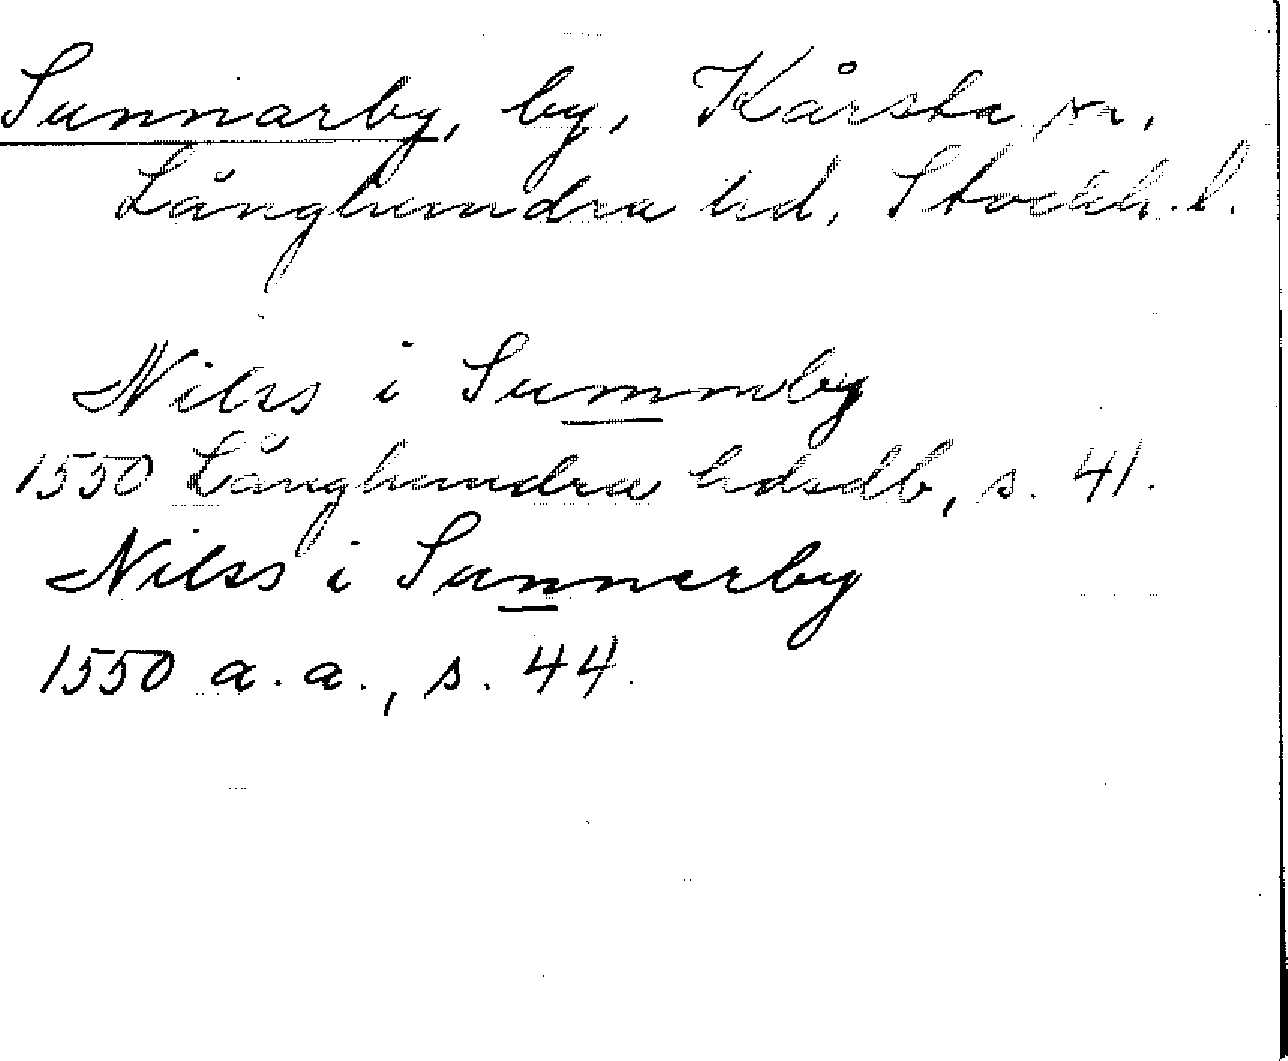 Sunnarby, by, Kårsta sn,
Långhundra hd, Stockh. l.
Nilss i Summby
1550 Långhundra hdsdb, s. 41.
Nilss i Sunnerby
1550 a. a., s. 44.